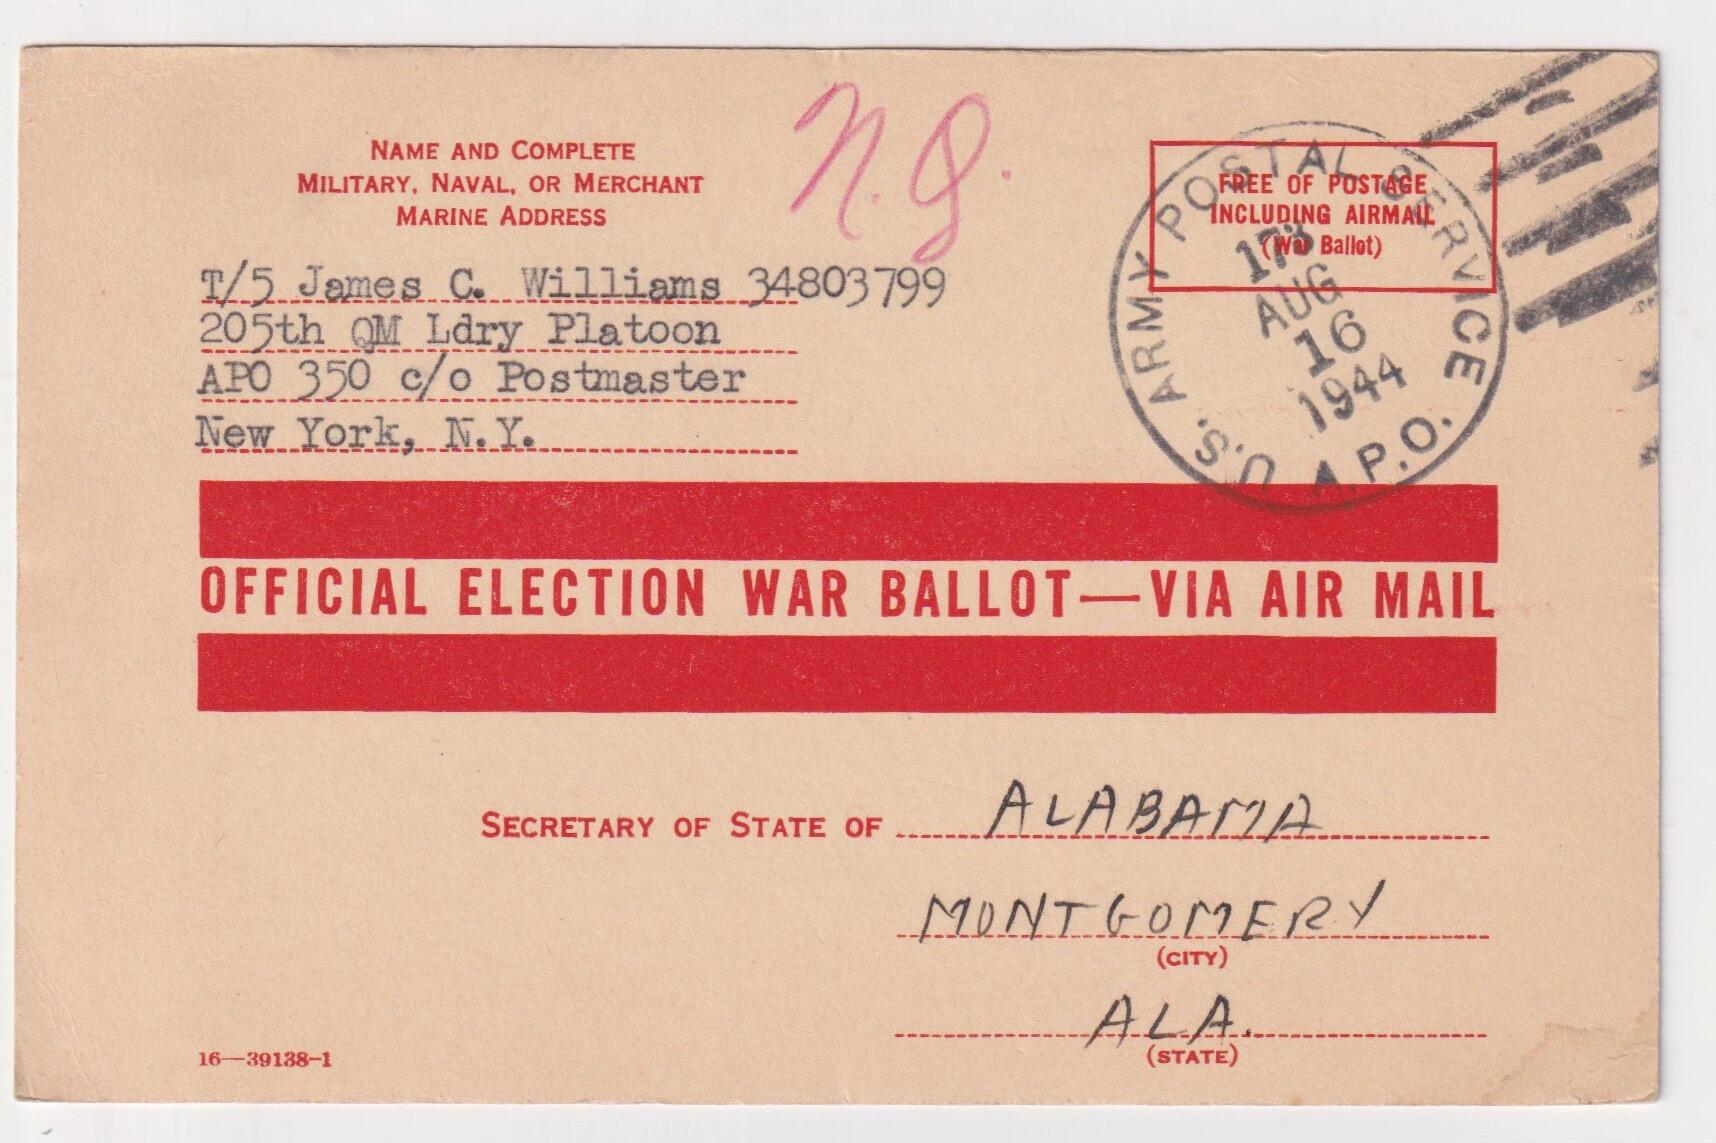 NAME AND COMPLETE
MILITARY, NAVAL, OR MERCHANT
MARINE ADDRESS
N.G.
FREE OF POSTAGE
INCLUDING AIRMAIL
(War Ballot)
U.S. ARMY POSTAL SERVICE
173
AUG
16
1944
A.P.O.
T/5 James C. Williams 34803799
205th QM Ldry Platoon
APO 350 c/o Postmaster
New York, N.Y.
OFFICIAL ELECTION WAR BALLOT—VIA AIR MAIL
SECRETARY OF STATE OF ALABAMA
MONTGOMERY
(CITY)
ALA.
(STATE)
16—39138-1